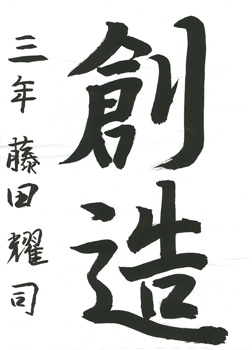 創造
三年 藤田耀司